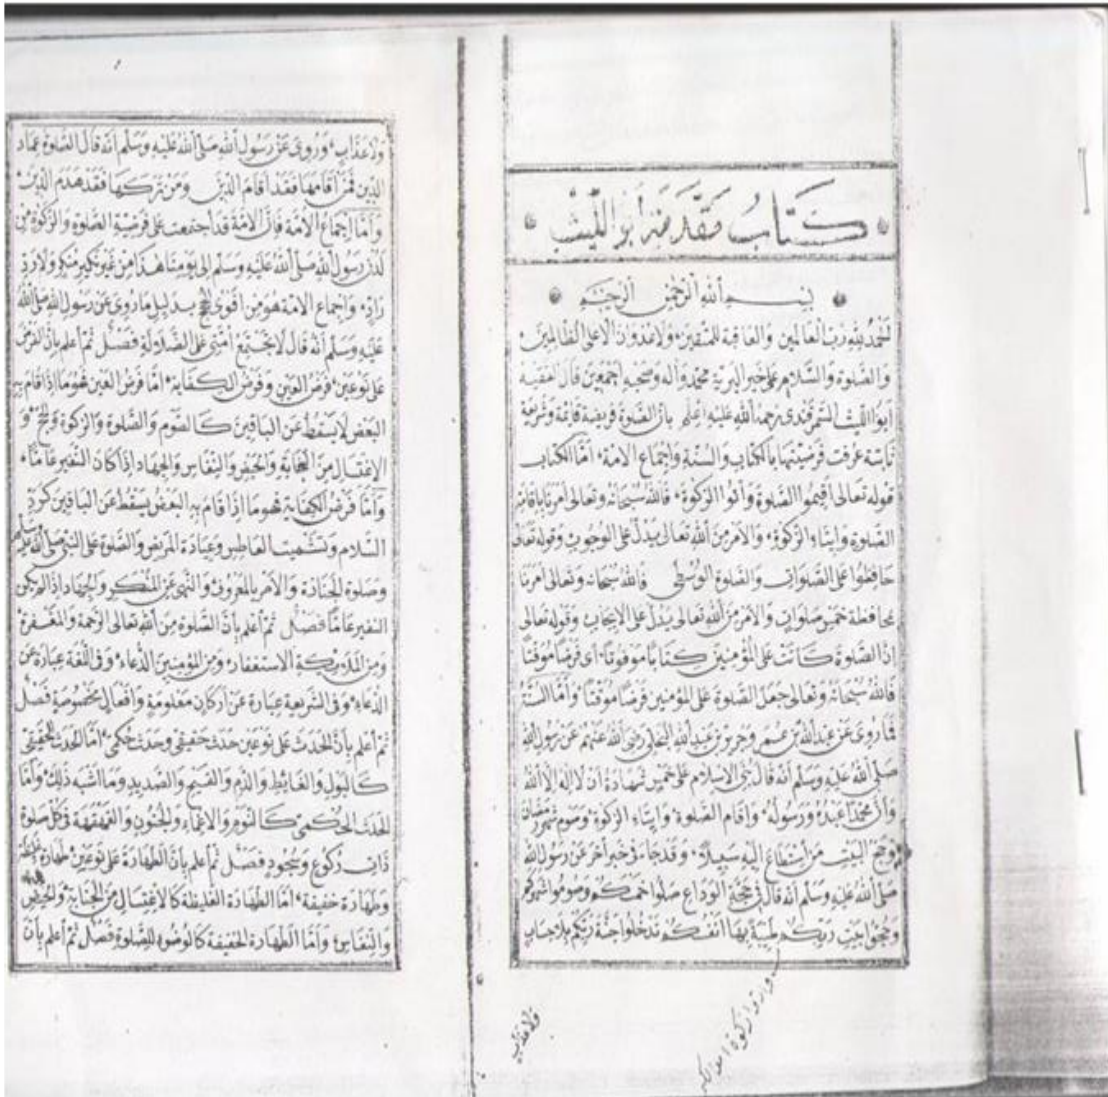 كتاب مقدمة أبو الليث
بسم الله الرحمن الرحيم
الحمد لله رب العالمين والعاقبة للمتقين ولا عدوان الا على الظالمين
والصلوة والسلام على خير البرية محمد وآله وصحبه أجمعين قال الفقيه
ابو الليث السمرقندى رحمة الله عليه اعلم بان الصلوة فريضة قائمة وشريعة
ثابتة عرفت فرضيتها بالكتاب والسنة واجماع الامة اما الكتاب
قوله تعالى أقيموا الصلوة وآتوا الزكوة فالله سبحانه وتعالى أمرنا باقامة
الصلوة وايتاء الزكوة والامر من الله تعالى يدل على الوجوب وقوله تعالى
حافظوا على الصلوات والصلوة الوسطى فالله سبحانه وتعالى أمرنا
بمحافظة خمس صلوات والامر من الله تعالى يدل على الايجاب وقوله تعالى
ان الصلوة كانت على المؤمنين كتابا موقوتا أى فرضا موقتا
فالله سبحانه وتعالى جعل الصلوة على المؤمنين فرضا موقتا وأما السنة
فما روى عن عبد الله بن عمر وجرير بن عبد الله البجلى رضى الله عنهم عن رسول الله
صلى الله عليه وسلم أنه قال بنى الاسلام على خمس شهادة أن لا اله الا الله
وأن محمدا عبده ورسوله واقام الصلوة وايتاء الزكوة وصوم شهر رمضان
وحج البيت من استطاع اليه سبيلا وقد جاء فى خبر آخر عن رسول الله
صلى الله عليه وسلم أنه قال فى حجة الوداع صلوا خمسكم وصوموا شهركم
وحجوا بيت ربكم طيبة بها أنفسكم تدخلوا جنة ربكم بلا حساب
وادوا زكوة اموالكم
ولا عذاب
ولا عذاب وروى عن رسول الله صلى الله عليه وسلم أنه قال الصلوة عماد
الدين فمن أقامها فقد أقام الدين ومن تركها فقد هدم الدين
وأما اجماع الامة فان الامة قد أجتمعت على فرضية الصلوة والزكوة من
لدن رسول الله صلى الله عليه وسلم الى يومنا هذا من غير نكير منكر ولا رد
راد واجماع الامة هو من أقوى الحجج بدليل ما روى عن رسول الله صلى الله
عليه وسلم أنه قال لا تجتمع أمتى على الضلالة فصل ثم أعلم بان الفرض
على نوعين فرض العين وفرض الكفاية اما فرض العين فهو ما اذا قام به
البعض لا يسقط عن الباقين كالصوم والصلوة والزكوة والحج و
الاغتسال من الجنابة والحيض والنفاس والجهاد اذا كان النفير عاما
وأما فرض الكفاية فهو ما اذا قام به البعض يسقط عن الباقين كرد
السلام وتشميت العاطس وعيادة المريض والصلوة على النبى صلى الله عليه وسلم
وصلوة الجنازة والامر بالمعروف والنهى عن المنكر والجهاد اذا لم يكن
النفير عاما فصل ثم أعلم بأن الصلوة من الله تعالى الرحمة والمغفرة
ومن الملائكة الاستغفار ومن المؤمنين الدعاء وفى اللغة عبارة عن
الدعاء وفى الشريعة عبارة عن أركان معلومة وأفعال مخصوصة فصل
ثم أعلم بأن الحدث على نوعين حدث حقيقى وحدث حكمى أما الحدث الحقيقى
كالبول والغائط والدم والقيح والصديد وما اشبه ذلك وأما
الحدث الحكمى كالنوم والاغماء والجنون والقهقهة فى كل صلوة
ذات ركوع وسجود فصل ثم أعلم بأن الطهارة على نوعين طهارة غليظة
وطهارة خفيفة أما الطهارة الغليظة كالاغتسال من الجنابة والحيض
والنفاس وأما الطهارة الخفيفة كالوضوء للصلوة فصل ثم أعلم بأن